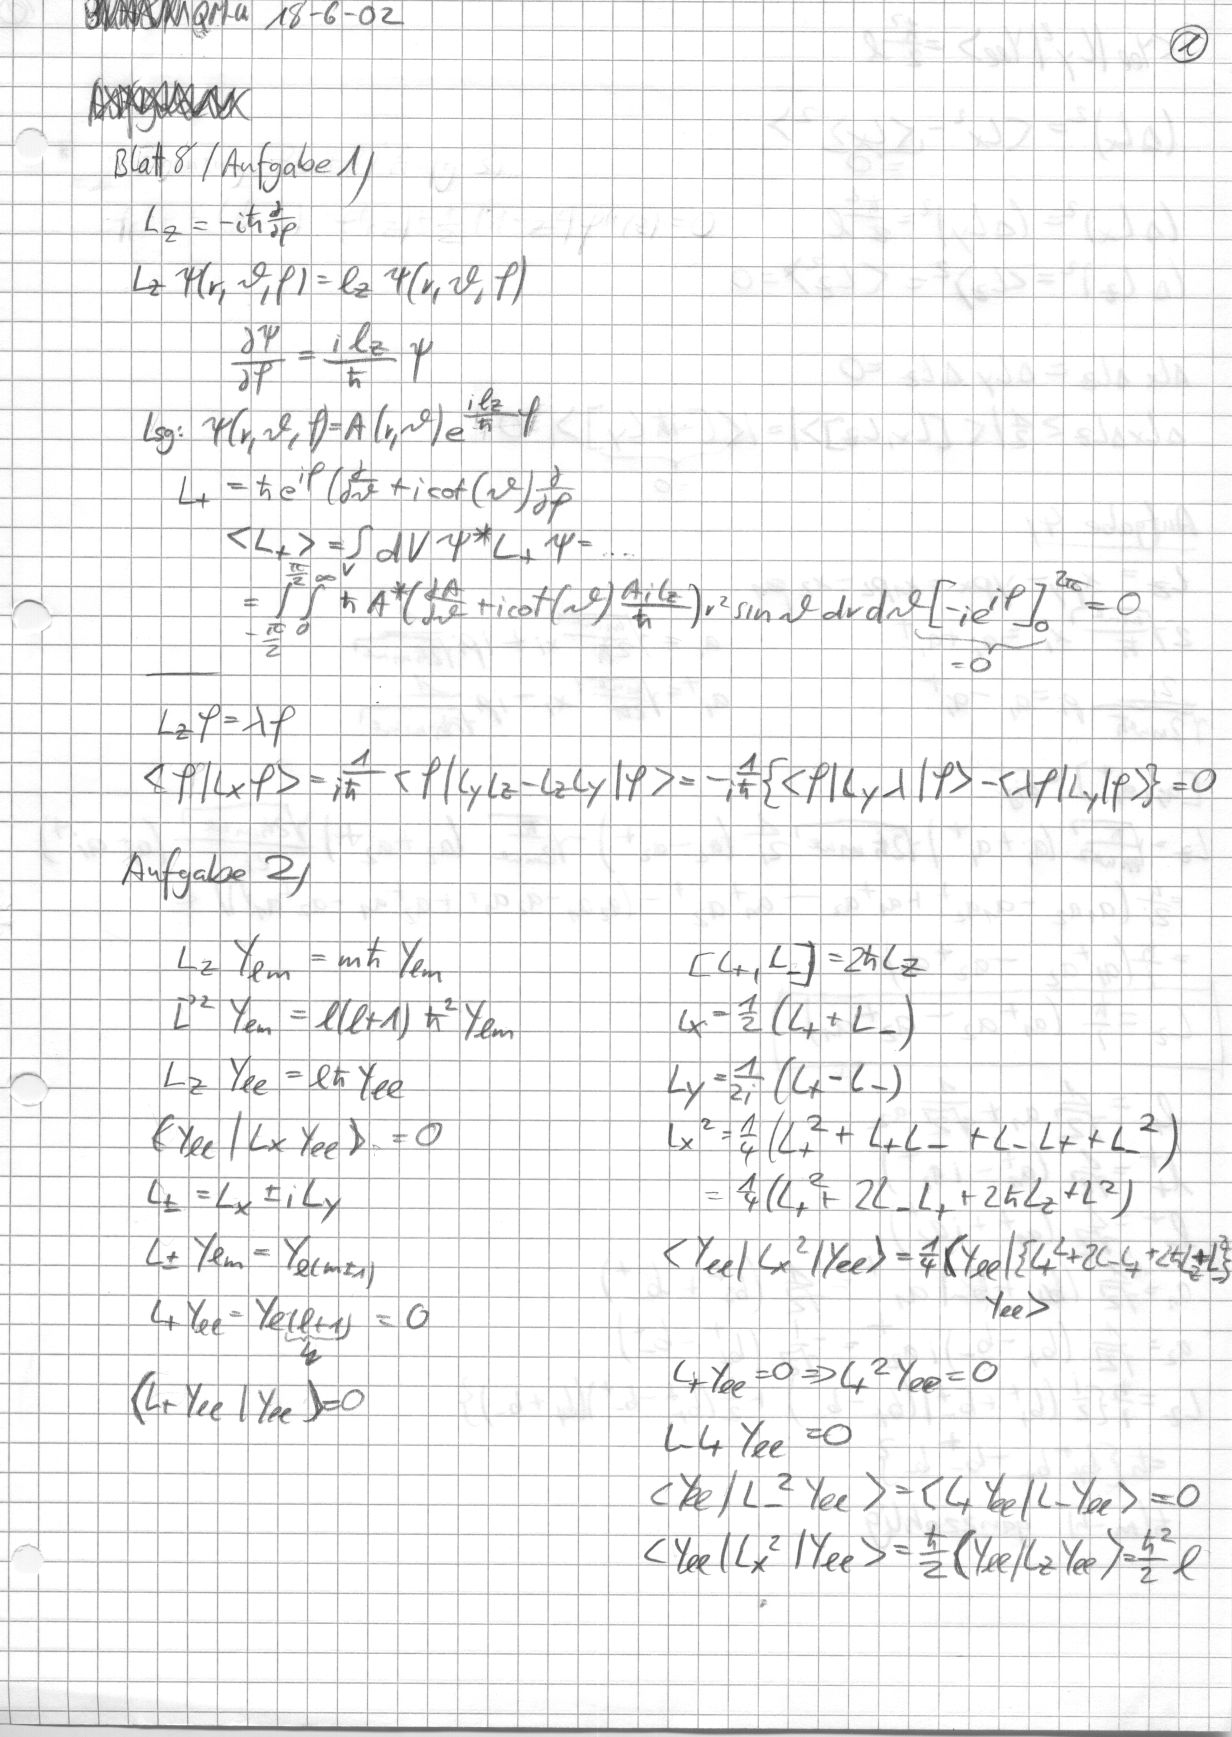 QM-Ü 18-6-02
1
Blatt 8 / Aufgabe 1)
L_z = -iħ ∂/∂φ
L_z Ψ(r, ϑ, φ) = l_z Ψ(r, ϑ, φ)
∂Ψ/∂φ = (i l_z/ħ) Ψ
Lsg: Ψ(r, ϑ, φ) = A(r, ϑ) e^{(i l_z/ħ) φ}
L_+ = ħ e^{iφ} (∂/∂ϑ + i cot(ϑ) ∂/∂φ
<L_+> = ∫_V dV Ψ* L_+ Ψ = ....
= ∫_{-π/2}^{π/2} ∫_0^∞ ħ A* (∂A/∂ϑ + i cot(ϑ) A i l_z/ħ) r² sin ϑ dr dϑ [-i e^{iφ}]_0^{2π} = 0
= 0
L_z φ = λφ
<φ|L_x φ> = 1/(iħ) <φ|L_y L_z - L_z L_y|φ> = -i 1/ħ {<φ|L_y λ|φ> - <λφ|L_y|φ>} = 0
Aufgabe 2)
L_z Y_lm = mħ Y_lm
L⃗² Y_lm = l(l+1) ħ² Y_lm
L_z Y_ll = lħ Y_ll
<Y_ll | L_x Y_ll> = 0
L_± = L_x ± i L_y
L_± Y_lm = Y_l(m±1)
L_+ Y_ll = Y_l(l+1) = 0
(L_+ Y_ll | Y_ll) = 0
[L_+, L_-] = 2ħ L_z
L_x = 1/2 (L_+ + L_-)
L_y = 1/2i (L_+ - L_-)
L_x² = 1/4 (L_+² + L_+ L_- + L_- L_+ + L_-²)
= 1/4 (L_+² + 2L_- L_+ + 2ħ L_z + L_-²)
<Y_ll | L_x² | Y_ll> = 1/4 <Y_ll | {L_+² + 2L_- L_+ + 2ħ L_z + L_-²}
Y_ll>
L_+ Y_ll = 0 ⇒ L_+² Y_ll = 0
L_- L_+ Y_ll = 0
<Y_ll | L_-² Y_ll> = <L_+ Y_ll | L_- Y_ll> = 0
<Y_ll | L_x² | Y_ll> = ħ/2 (Y_ll | L_z Y_ll) = ħ²/2 l